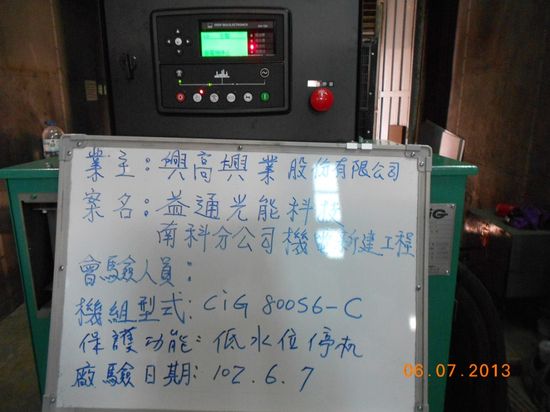 業主：興高興業股份有限公司
案名：益通光能科技
南科分公司機電新建工程
會驗人員：
機組型式：CiG 800S6-C
保護功能：低水位停机
廠驗日期：102.6.7
06.07.2013